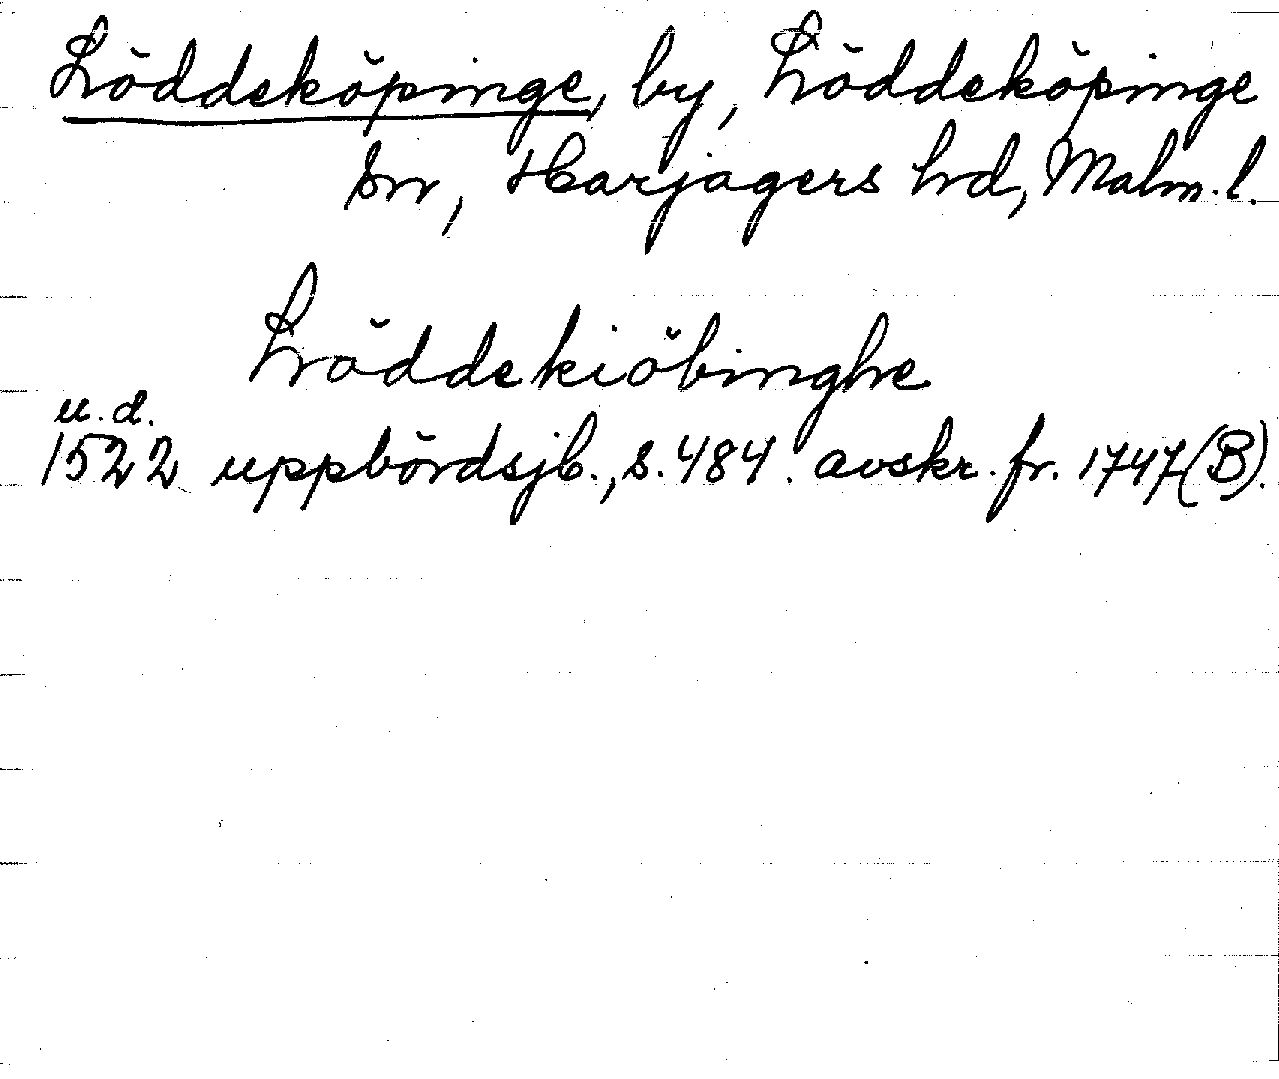 Löddeköpinge, by, Löddeköpinge
sn, Harjagers hd, Malm. l.
Löddekiöbinghe
u. d.
1522 uppbördsjb., s. 484. avskr. fr. 1747 (B).